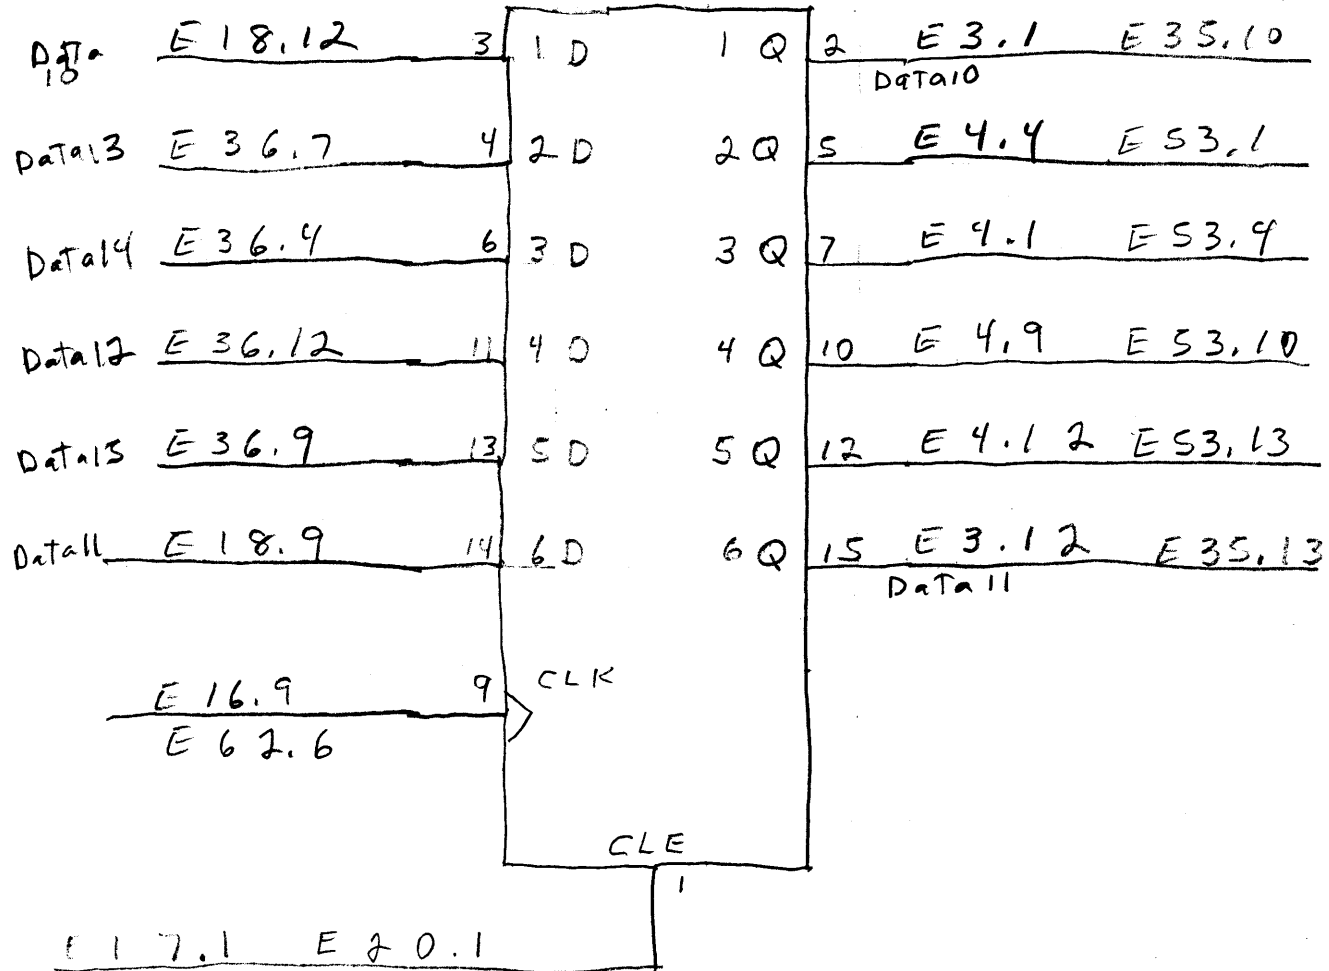 Data E 18.12 3 1 D 1 Q 2 E 3.1 E 35.10
10 Data10
Data13 E 36.7 4 2 D 2 Q 5 E 4.4 E 53.1
Data14 E 36.4 6 3 D 3 Q 7 E 4.1 E 53.4
Data12 E 36.12 11 4 D 4 Q 10 E 4.9 E 53.10
Data15 E 36.9 13 5 D 5 Q 12 E 4.12 E 53.13
Data11 E 18.9 14 6 D 6 Q 15 E 3.12 E 35.13
Data11
E 16.9 9 CLK
E 62.6
CLE
1
E 17.1 E 20.1